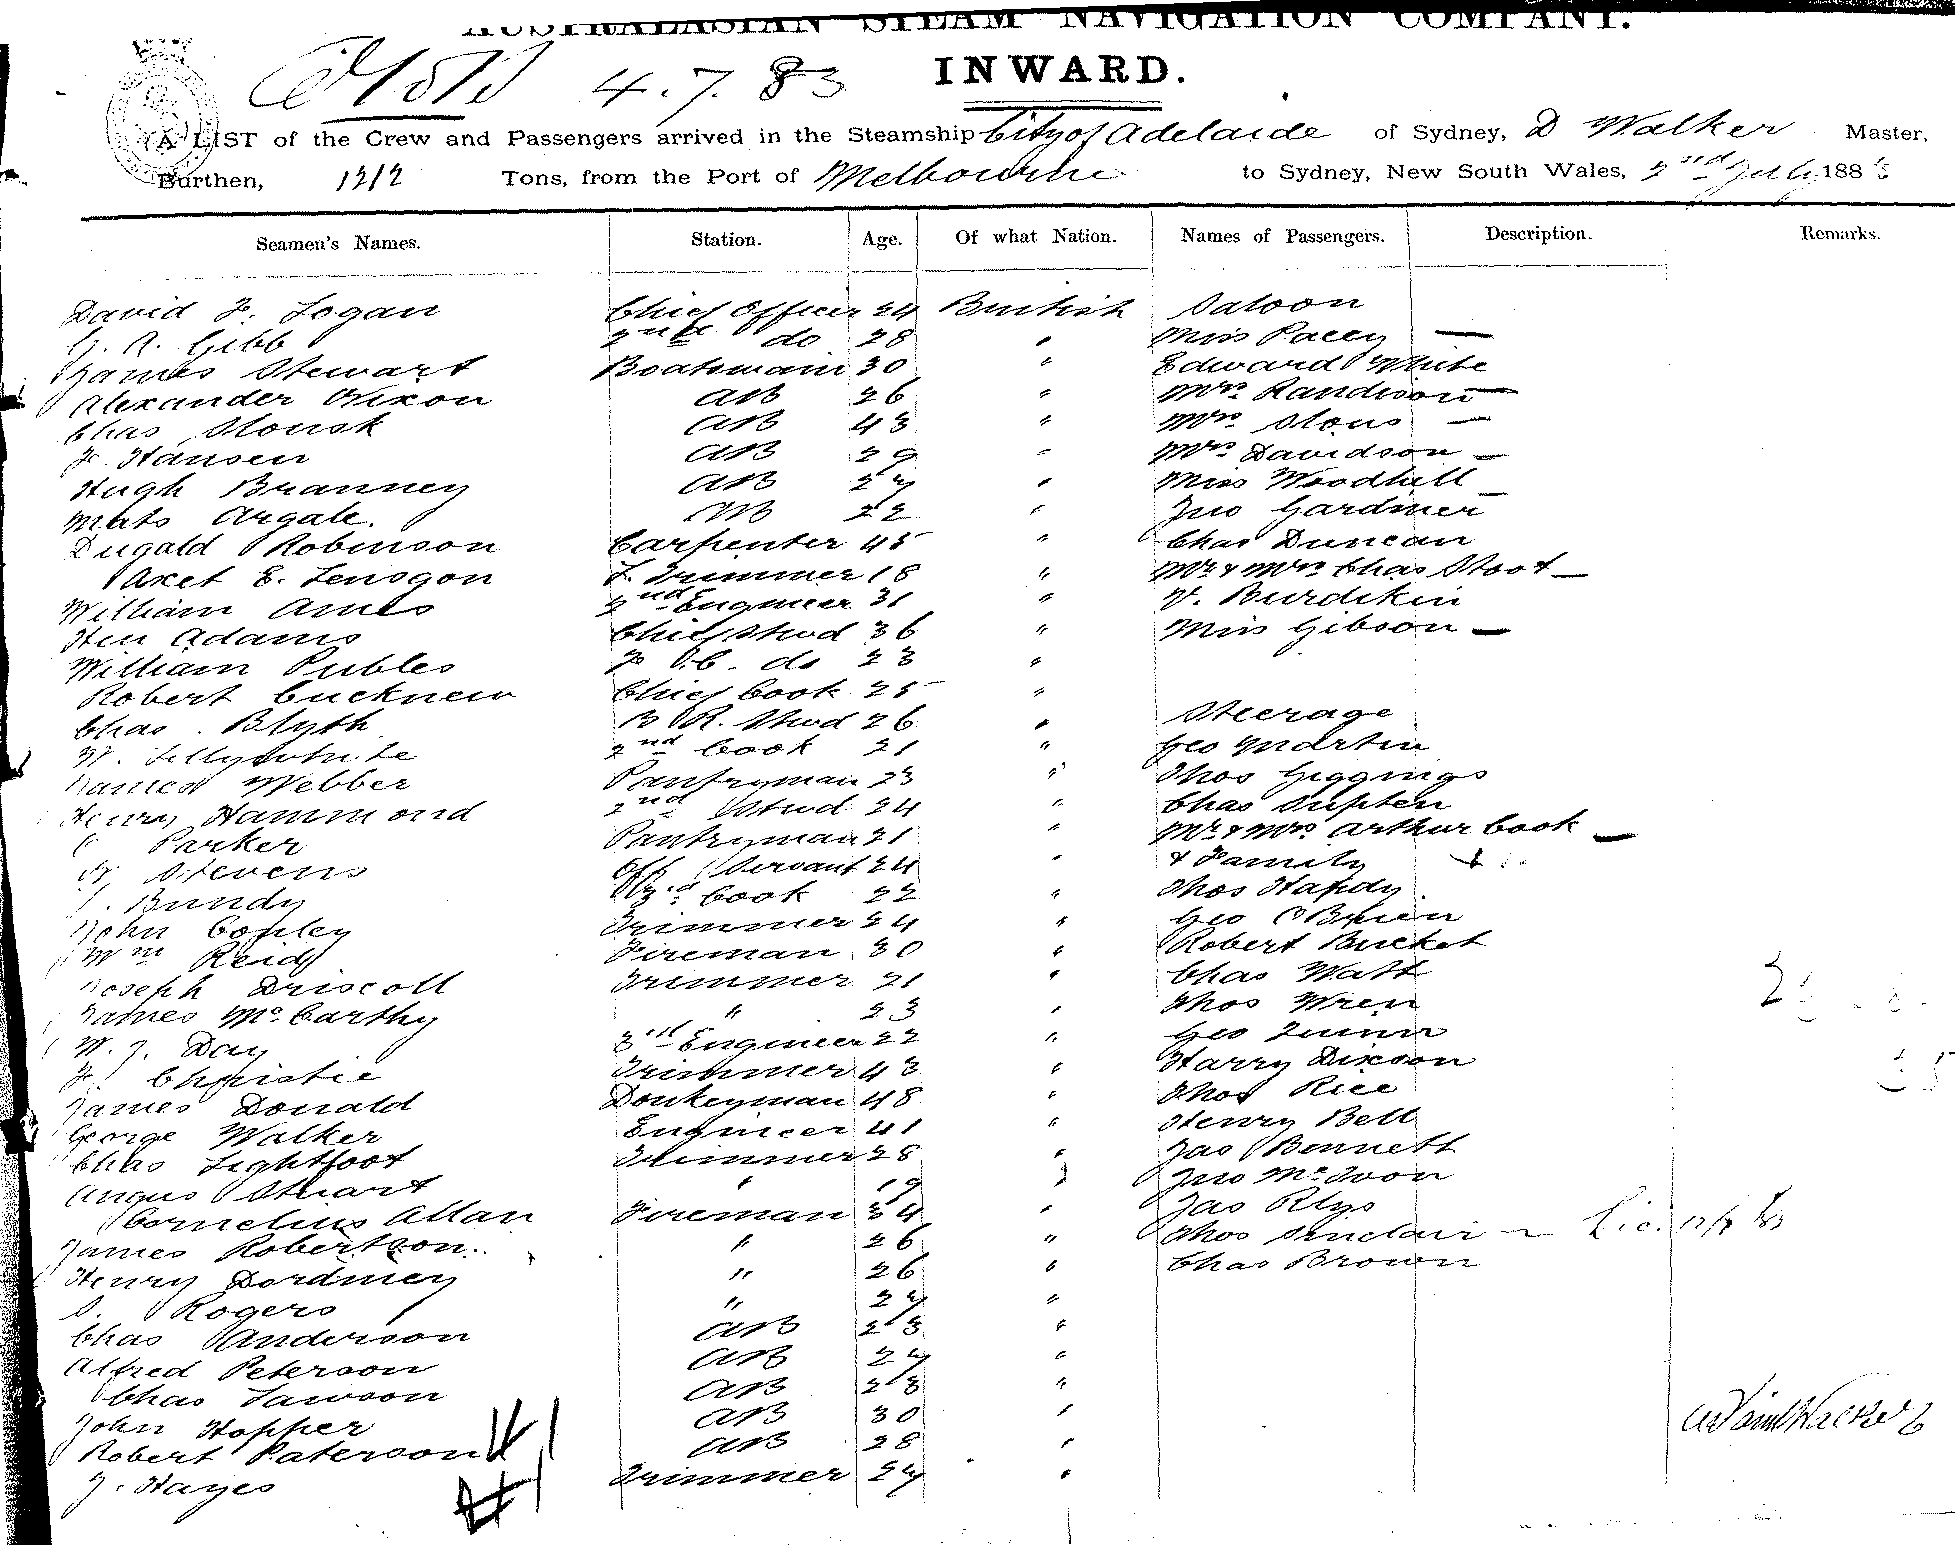 AUSTRALASIAN STEAM NAVIGATION COMPANY.
4.7.83 INWARD.
A LIST of the Crew and Passengers arrived in the Steamship City of Adelaide of Sydney, D Walker Master,
Burthen, 1212 Tons, from the Port of Melbourne to Sydney, New South Wales, 2nd July 1883
Seamen's Names. Station. Age. Of what Nation. Names of Passengers. Description. Remarks.
David F. Logan Chief Officer 24 British Saloon
G. A. Gibb 2nd do 28 " Miss Pacey —
James Stewart Boatswain 30 " Edward White
Alexander Nixon AB 26 " Mrs Randison —
Chas AB 43 " Mrs Stous —
F. Hansen AB 29 " Mrs Davidson —
Hugh Branney AB 27 " Miss Woodhill —
Mats Argale. AB 22 " Jno Gardiner
Dugald Robinson Carpenter 45 " Chas Duncan
Axel E. L. Trimmer 18 " Mr & Mrs Chas Stoot —
William Ames 2nd Engineer 31 " V. Burdikin
Hen Adams Chief Stwd 36 " Miss Gibson —
William Publes F. C. do 23 "
Robert Cucknew Chief Cook 25 "
Chas. Blyth B R. Stwd 26 " Steerage
W. Lillywhite 2nd Cook 21 " Geo Martin
James Webber Pantryman 23 " Thos Giggings
Henry Hammond 2nd Stwd 24 " Chas
C Parker Pantryman 21 " Mr & Mrs Arthur Cook —
Stevens Off Servant 24 " & Family
Bundy 3rd Cook 22 " Thos Hardy
John Copley Trimmer 24 " Geo O'Brien
Wm Reid Fireman 30 " Robert Bucket
Joseph Driscoll Trimmer 21 " Chas Watt
James McCarthy " 23 " Thos Wren
W. J. Day 3rd Engineer 22 " Geo Quinn
F. Christie Trimmer 43 " Harry Dixson
James Donald Donkeyman 48 " Thos Rice
George Walker Engineer 41 " Henry Bell
Chas Lightfoot Trimmer 28 " Jas Bennett
Angus Stuart " 19 " Jno McIvon
Cornelius Allan Fireman 34 " Jas Rlys
James Robertson. " 26 " Thos Sinclair —
Henry Dordmey " 26 " Chas Brown
S. Rogers " 27 "
Chas Anderson AB 23 "
Alfred Peterson AB 27 "
Chas Lawson AB 28 "
John Hopper AB 30 "
Robert Paterson AB 28 "
J. Hayes Trimmer 27 "